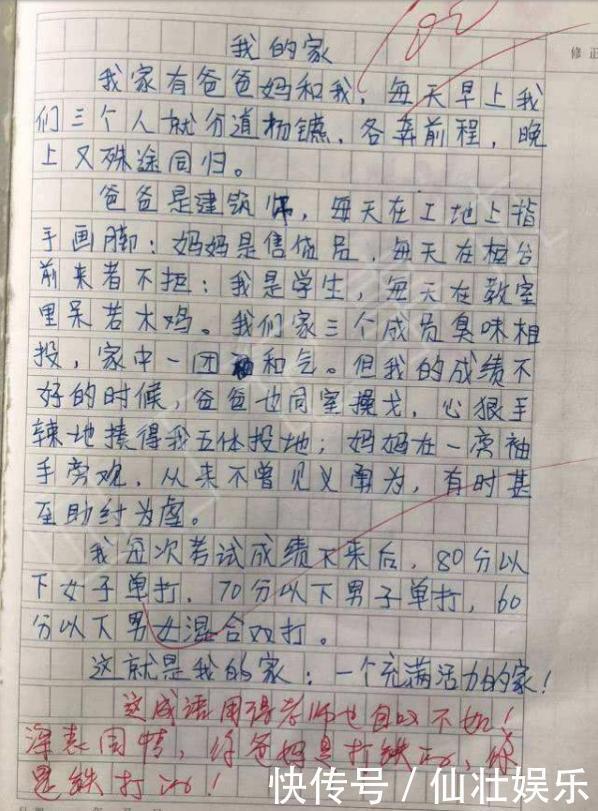 我的家
修正
我家有爸爸妈和我，每天早上我
们三个人就分道扬镳，各奔前程，晚
上又殊途同归。
爸爸是建筑师，每天在工地上指
手画脚；妈妈是售货员，每天在柜台
前来者不拒；我是学生，每天在教室
里呆若木鸡。我们家三个成员臭味相
投，家中一团和气。但我的成绩不
好的时候，爸爸也同室操戈，心狠手
辣地揍得我五体投地；妈妈在一旁袖
手旁观，从来不曾见义勇为，有时甚
至助纣为虐。
我每次考试成绩下来后，80分以
下女子单打，70分以下男子单打，60
分以下男女混合双打。
这就是我的家：一个充满活力的家！
这成语用得老师也自叹不如！
深表同情，你爸妈是打铁的，你
是铁打的！
快传号/仙壮娱乐